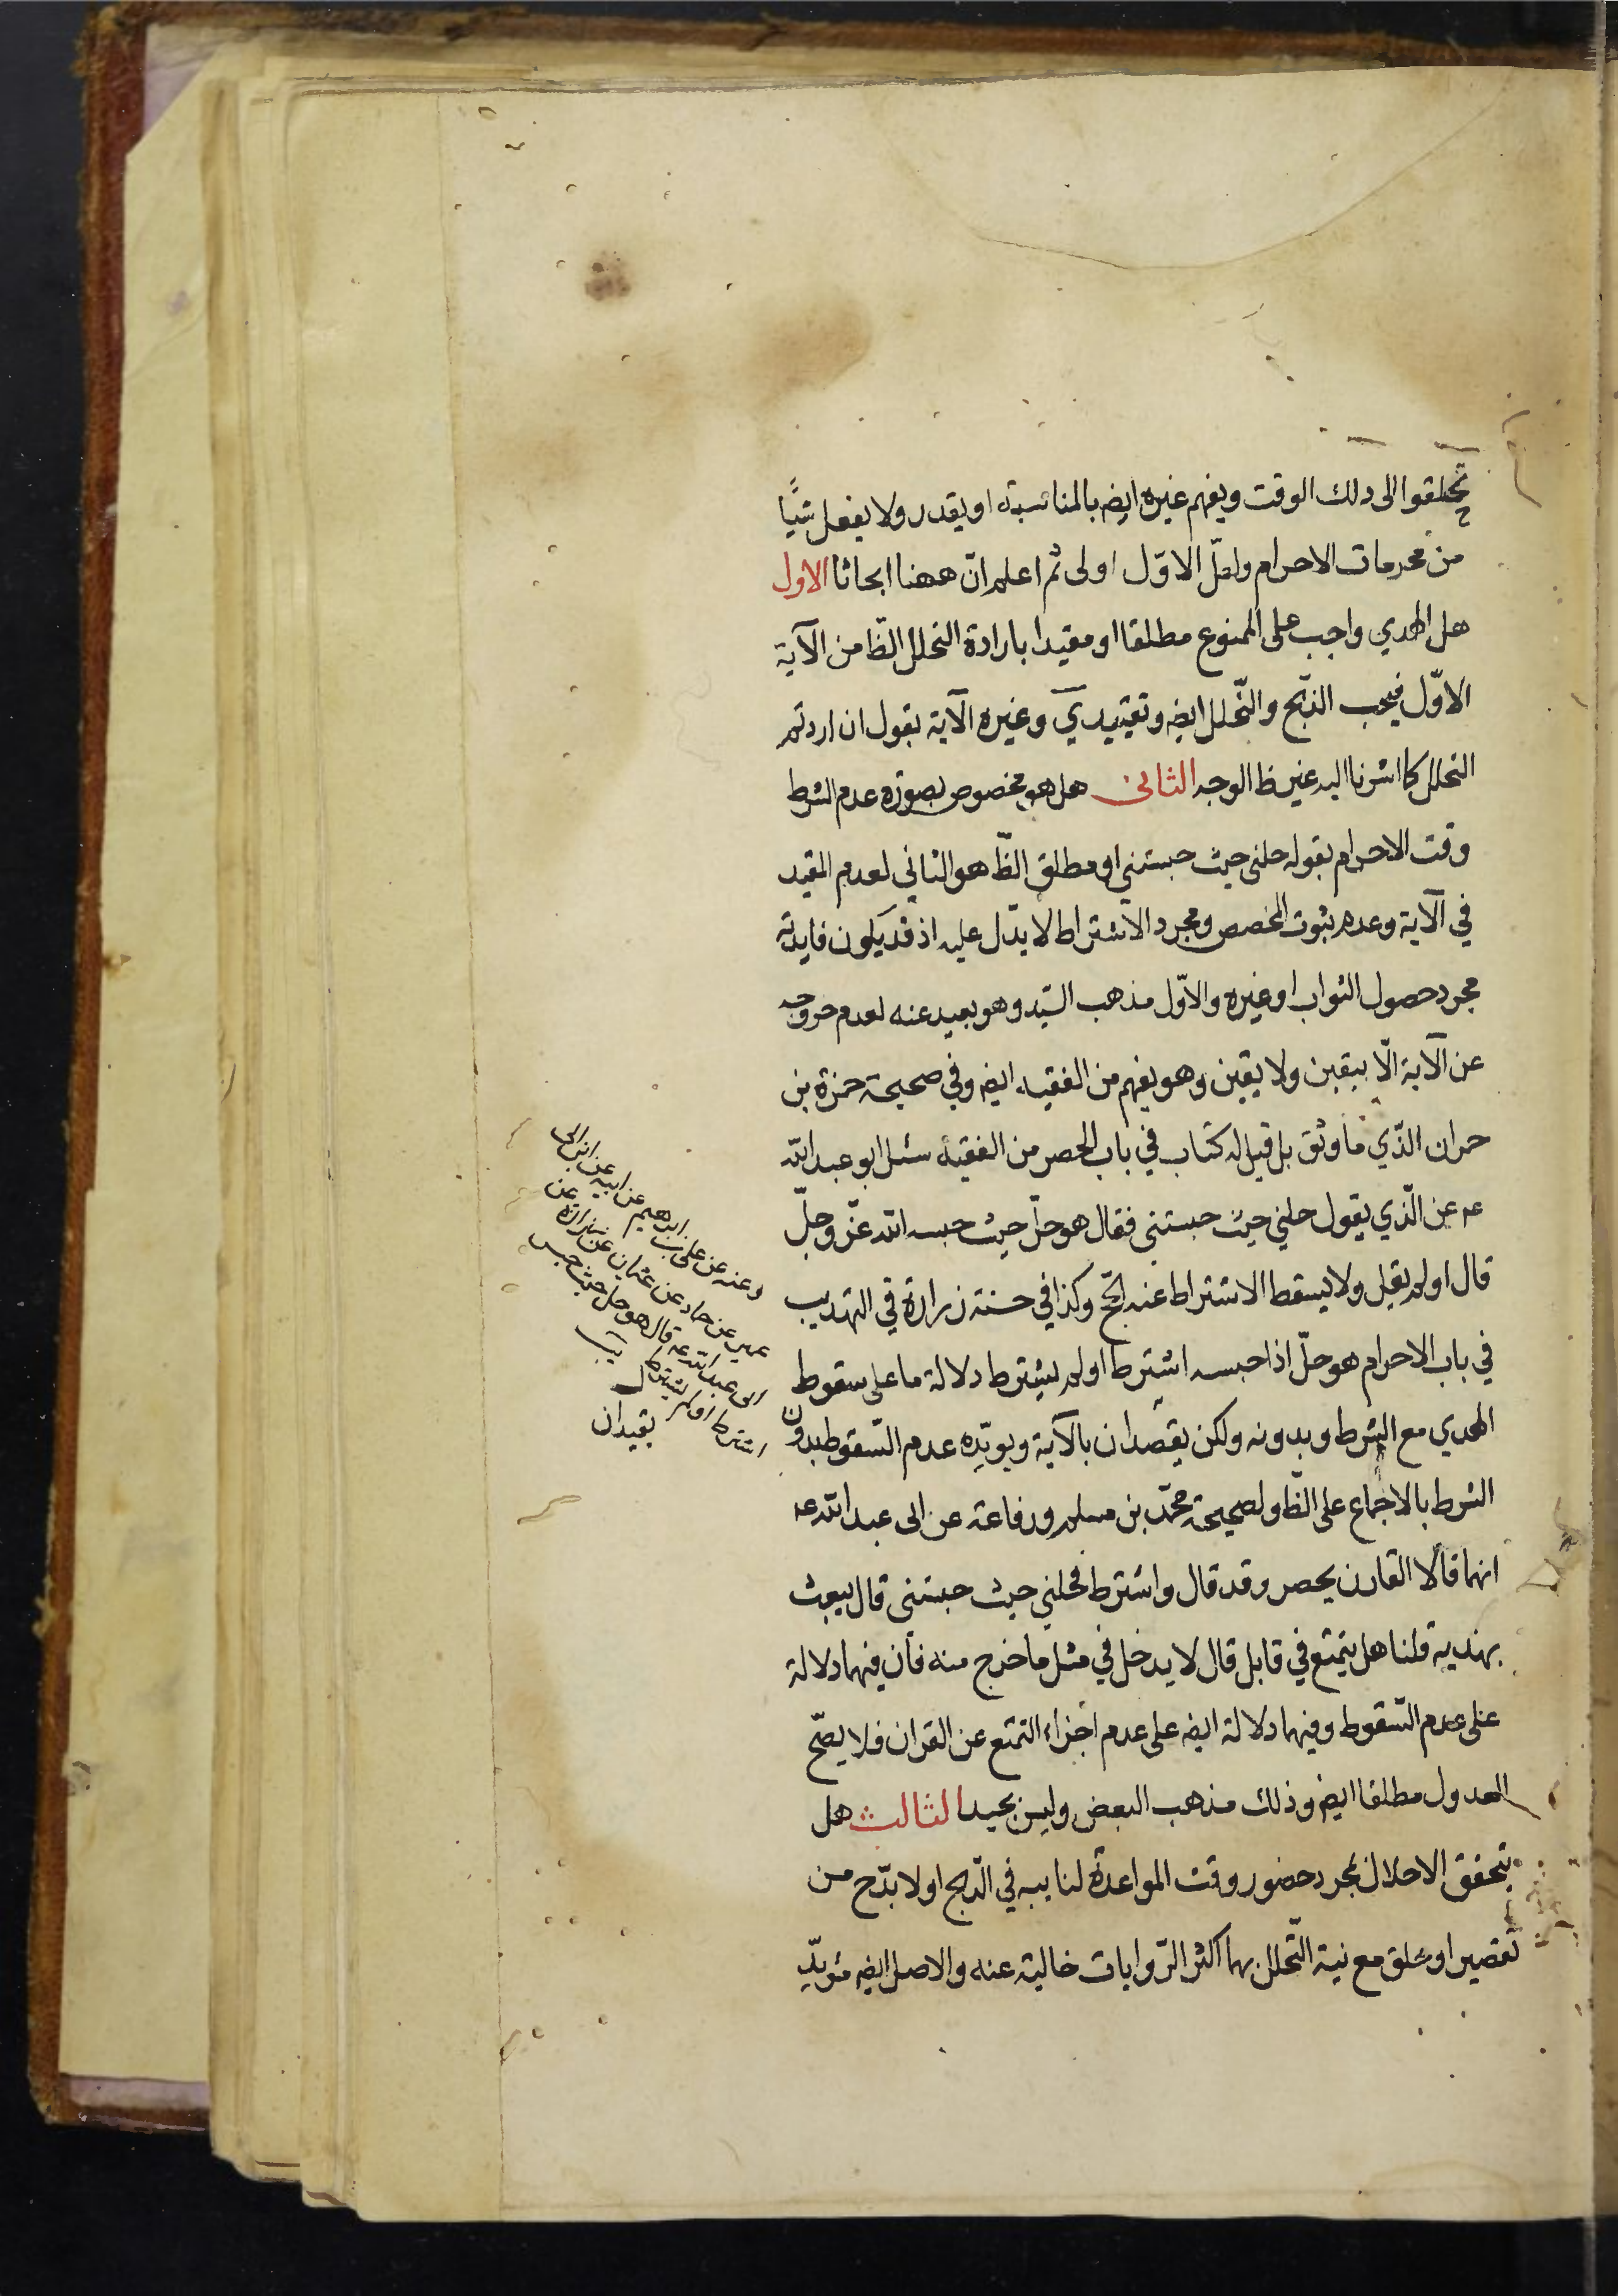 تحلقوا الى ذلك الوقت ويفهم غيره ايض بالمناسبة او يقدر ولا يفعل شيًا
من محرمات الاحرام ولعلّ الاوّل اولى ثم اعلم انّ ههنا ابحاثا الاول
هل الهدي واجب على الممنوع مطلقا او مقيدا بارادة التحلل الظّا من الآية
الاوّل فيجب الذّبح والتّحلل ايض وتقييد ي وغيره الآية بقول ان اردتم
التحلل كما اشرنا اليه غير ظا الوجه الثانى هل هو مخصوص بصورة عدم الشرط
وقت الاحرام بقوله حلنى حيث حبستني او مطلق الظّ هو الثاني لعدم المقيد
في الآية وعدم ثبوت المخصص ومجرد الاشتراط لا يدّل عليه اذ قد يكون فايدته
مجرد حصول الثواب او غيره والاوّل مذهب السّيد وهو بعيد عنه لعدم خروجه
عن الآية الّا بيقين ولا يقين وهو يفهم من الفقيه ايض وفي صحيحة حمزة بن
حمران الذّي ما وثق بل قيل له كتاب في باب الحصر من الفقيه سئل ابو عبد الله
عـ عن الّذي يقول حلني حيث حبستنى فقال هو حلّ حيث حبسه الله عزّ وجلّ
قال او لم يقل ولا يسقط الاشتراط عنه الحّج وكذا في حسنة زرارة في التهذيب
في باب الاحرام هو حلّ اذا حبسه اشترط او لم يشترط دلالة ما على سقوط
الهدي مع الشرط وبدونه ولكن يقصدان بالآية ويويّده عدم السّقوط بدون
الشرط بالاجماع على الظّا ولصحيحة محمّد بن مسلم ورفاعة عن ابى عبد الله عـ
انهما قالا القارن يحصر وقد قال واشترط فحلني حيث حبستنى قال يبعث
بهديه قلنا هل يتمتع في قابل قال لا يدخل في مثل ما خرج منه فان فيهما دلالة
على عدم السّقوط وفيهما دلالة ايض على عدم اجزاء التمتع عن القران فلا يصّح
العدول مطلقا ايض وذلك مذهب البعض وليس بجيد الثالث هل
يتحقق الاحلال بمجرد حضور وقت المواعدة لنايبه في الذّبح او لا بدّ ح من
تقصير او حلق مع نية التّحلل بهما اكثر الرّوايات خالية عنه والاصل ايض مؤيدّ
وعنه عن على بن ابراهيم عن ابيه عن ابن ابى
عمير عن حماد عن عثمان عن زرارة عن
ابى عبد الله عـ قال هو حل حيث حبس
اشترط او لم يشترط يب
يقيدان